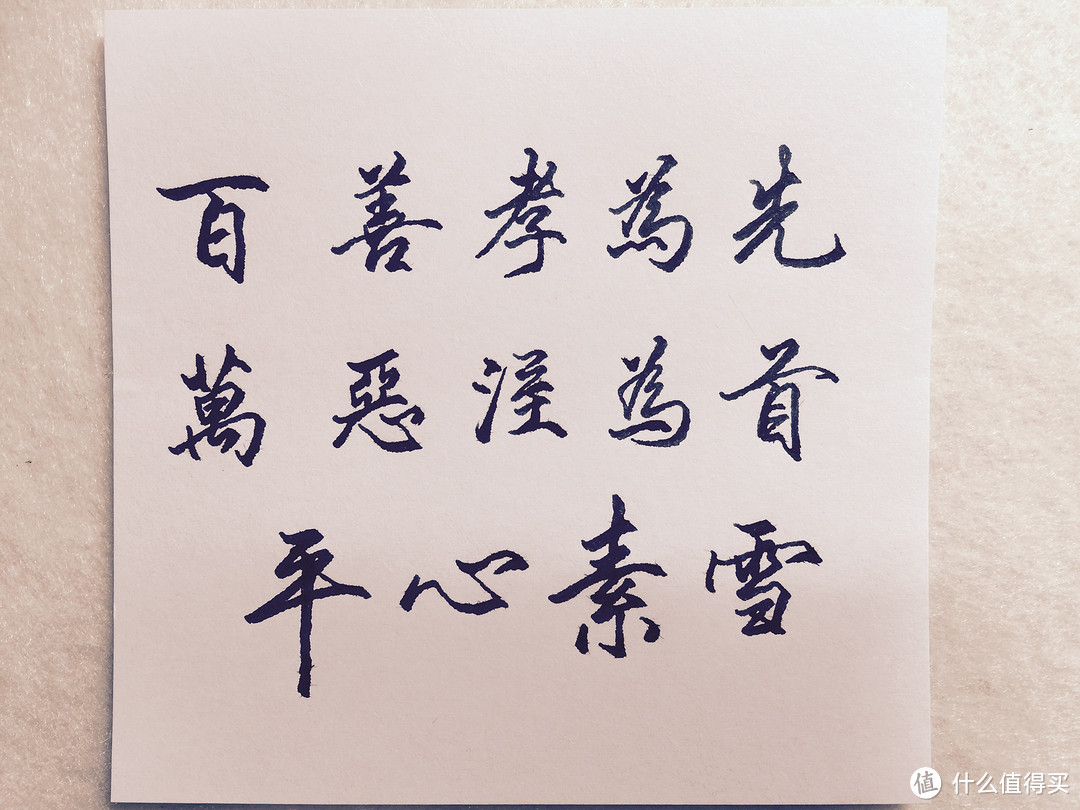 百善孝為先
萬惡淫為首
平心素雪
值 什么值得买